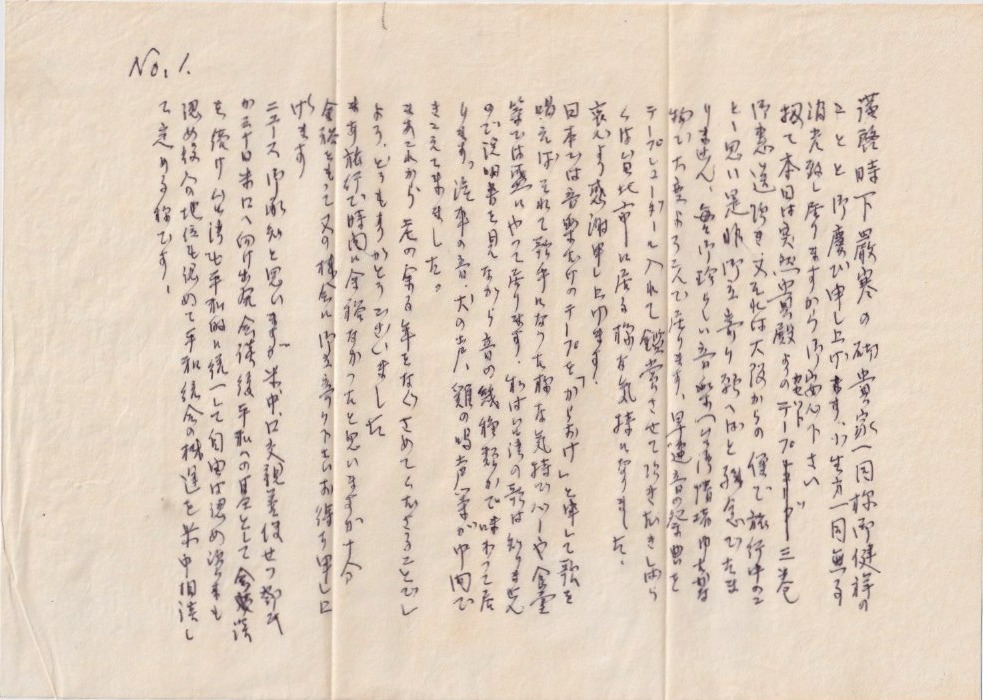 No. 1.
謹啓時下厳寒の砌貴家一同様御健祥の
ことと御慶び申し上げます、小生方一同無事
消光致し居りますから御安心下さい
扨て本日は突然貴殿よりのテープ カセット 三巻
御恵送頂き 又それは大阪からの便で旅行中のこ
とゝ思い是非御立寄り願へばと残念でたま
りません、毎に珍らしい音楽(台湾情場ゆたかな
物)で大変よろこんで居ります、早速音の祭典と
テープレコーダーに入れて鑑賞させて頂きましたら
くは台北市に居る様な気持になりました、
衷心より感謝申し上げます。
日本では音楽だけのテープを「からおけ」と申して歌を
唱えばそれで歌手になった様な気持でバーや食堂
等では盛にやって居ります、私は台湾の歌は知りません
ので説明書を見ながら音の幾種類かで味わって居
ります。汽車の音、犬の声、鶏の鳴声等が中間で
きこえて来ました。
まあこれから老の余る年をなぐさめてくださることでし
よう、どうもありがとうございました
まあ旅行で時間に余裕なかったと思いますが十分
余裕をもって又の機会に御立寄り下さいお待ち申し上
げます
ニュース御承知と思いますが米、中、口交親善使せつ
が 日米口へ向け出発会談後平和への目的として会談
を続け台湾も平和的に統一して自由は認め決らも
認め役人の地位も認めて平和統合の機運を米中相談し
て定める様です!